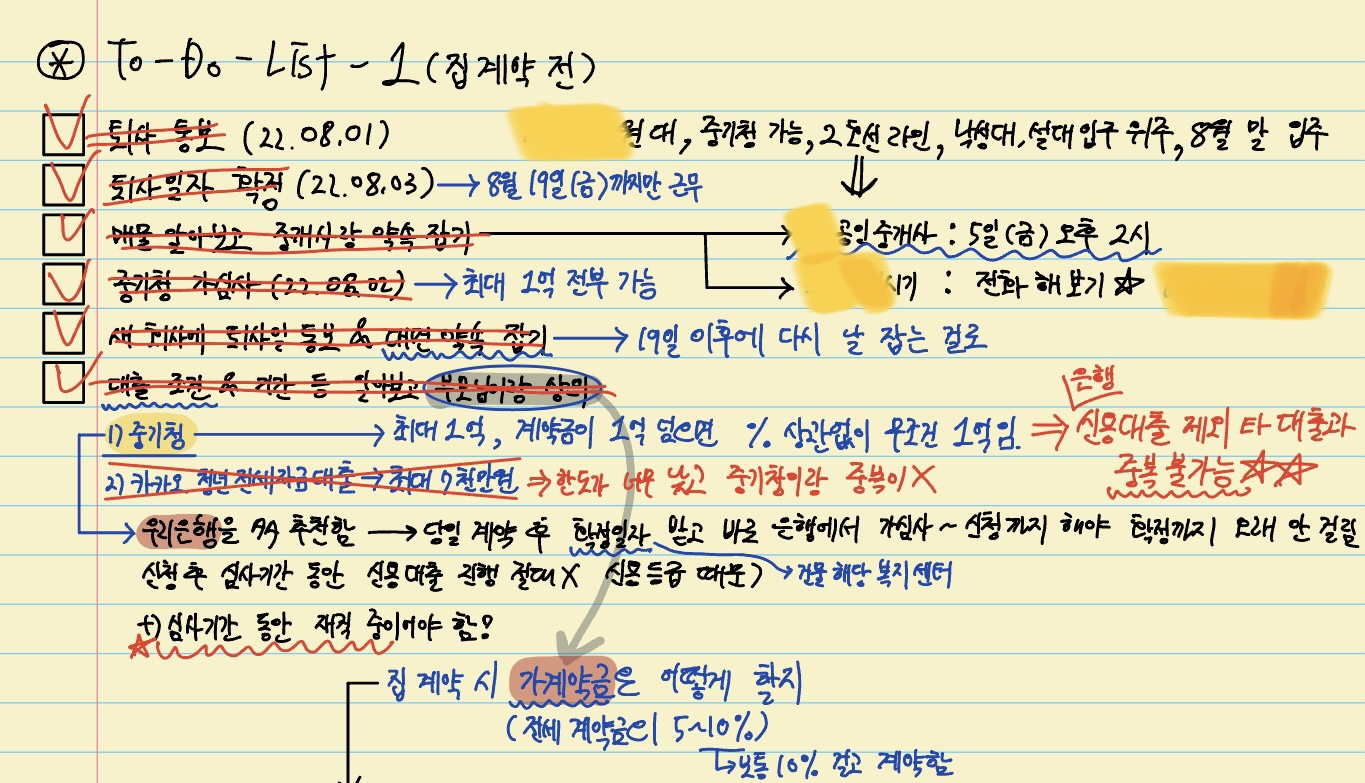 ⊛ To-Do-List-1 (집 계약 전)
퇴사 통보 (22.08.01)
월대, 중기청 가능, 2호선라인, 낙성대, 설대입구 위주, 8월 말 입주
퇴사일자 확정 (22.08.03) → 8월 19일(금)까지만 근무
매물 알아보고 중개사랑 약속 잡기 → 공인중개사 : 5일(금) 오후 2시
중기청 가심사 (22.08.02) → 최대 1억 전부 가능
: 전화 해보기 ☆
새 회사에 퇴사일 통보 & 대면 약속 잡기 → 19일 이후에 다시 날 잡는 걸로
대출 조건 & 기간 등 알아보고 부모님이랑 상의
은행
1) 중기청 → 최대 1억, 계약금이 1억 넘으면 % 상관없이 무조건 1억임. ⇒ 신용대출 제외 타 대출과
중복 불가능 ☆☆
2) 카카오 청년전세자금대출 → 최대 7천만원 ⇒ 한도가 너무 낮고 중기청이랑 중복이 X
→ 우리은행을 추천함 → 당일 계약 후 확정일자 받고 바로 은행에서 가심사 ~ 신청까지 해야 확정까지 오래 안 걸릴
신청 후 심사기간 동안 신용대출 진행 절대 X 신용등급 때문) → 건물 해당 복지센터
+) 심사기간 동안 재직 중이어야 함?
☆
집 계약 시 가계약금은 어떻게 할지
(전세 계약금의 5~10%)
↳ 보통 10% 걸고 계약함